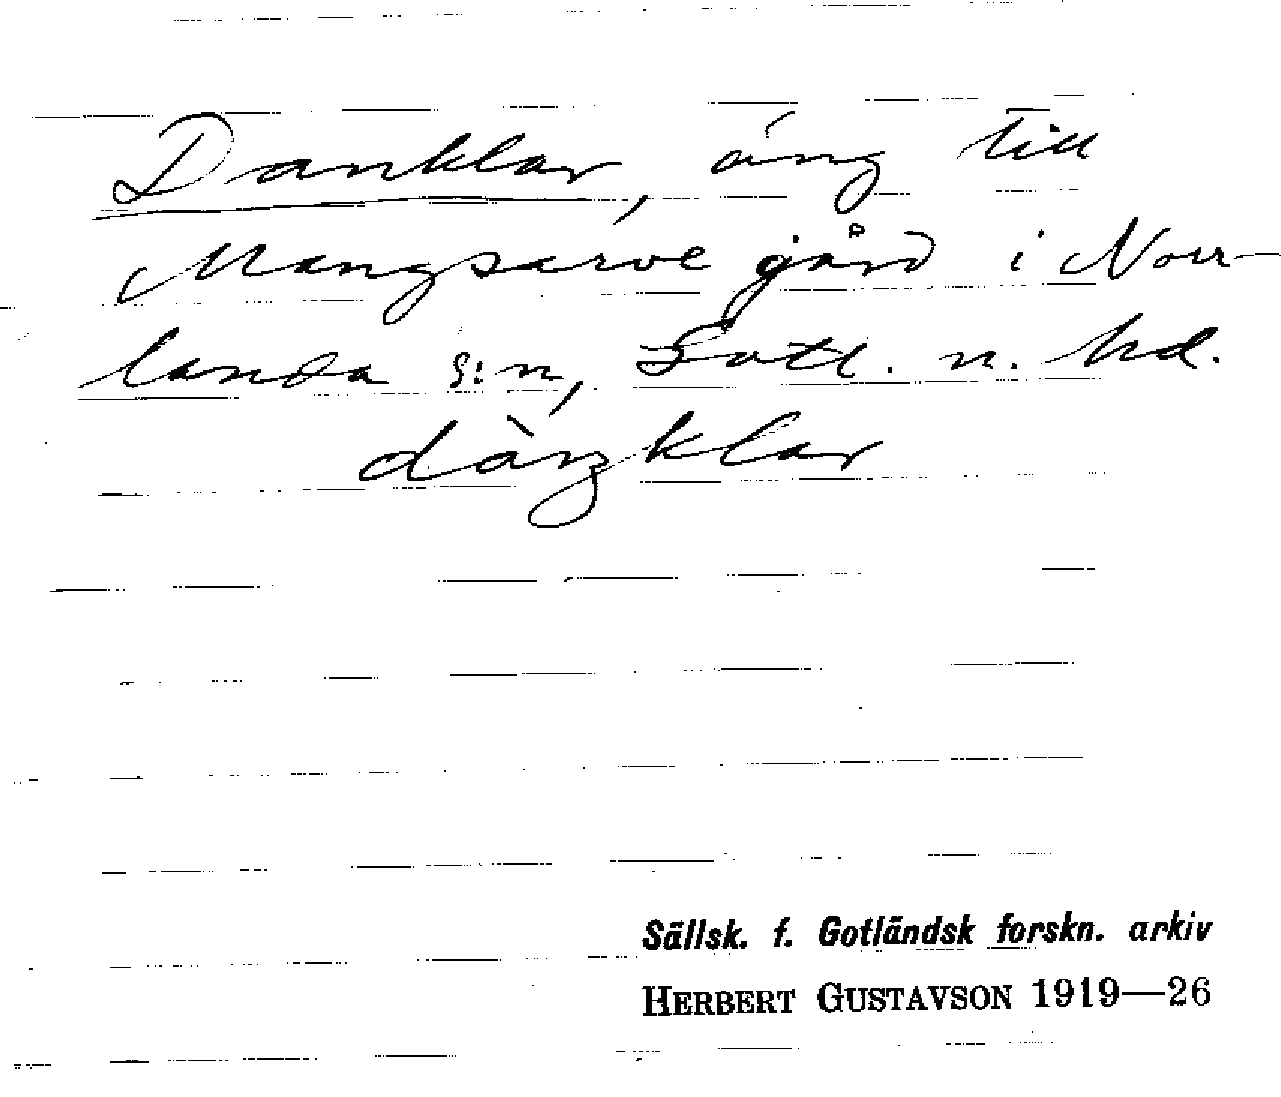 Danklar, äng till
Mangsarve gård i Norr-
landa s:n, Gotl. n. hd.
dàŋklar
Sällsk. f. Gotländsk forskn. arkiv
HERBERT GUSTAVSON 1919—26